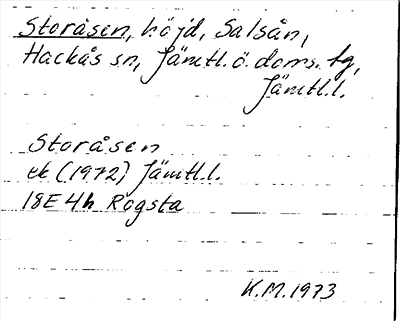 Storåsen, höjd, Salsån,
Hackås sn, Jämtl.ö. doms. tg,
Jämtl.l.
Storåsen
ek (1972) Jämtl.l.
18E 4h Rogsta
K.M. 1973